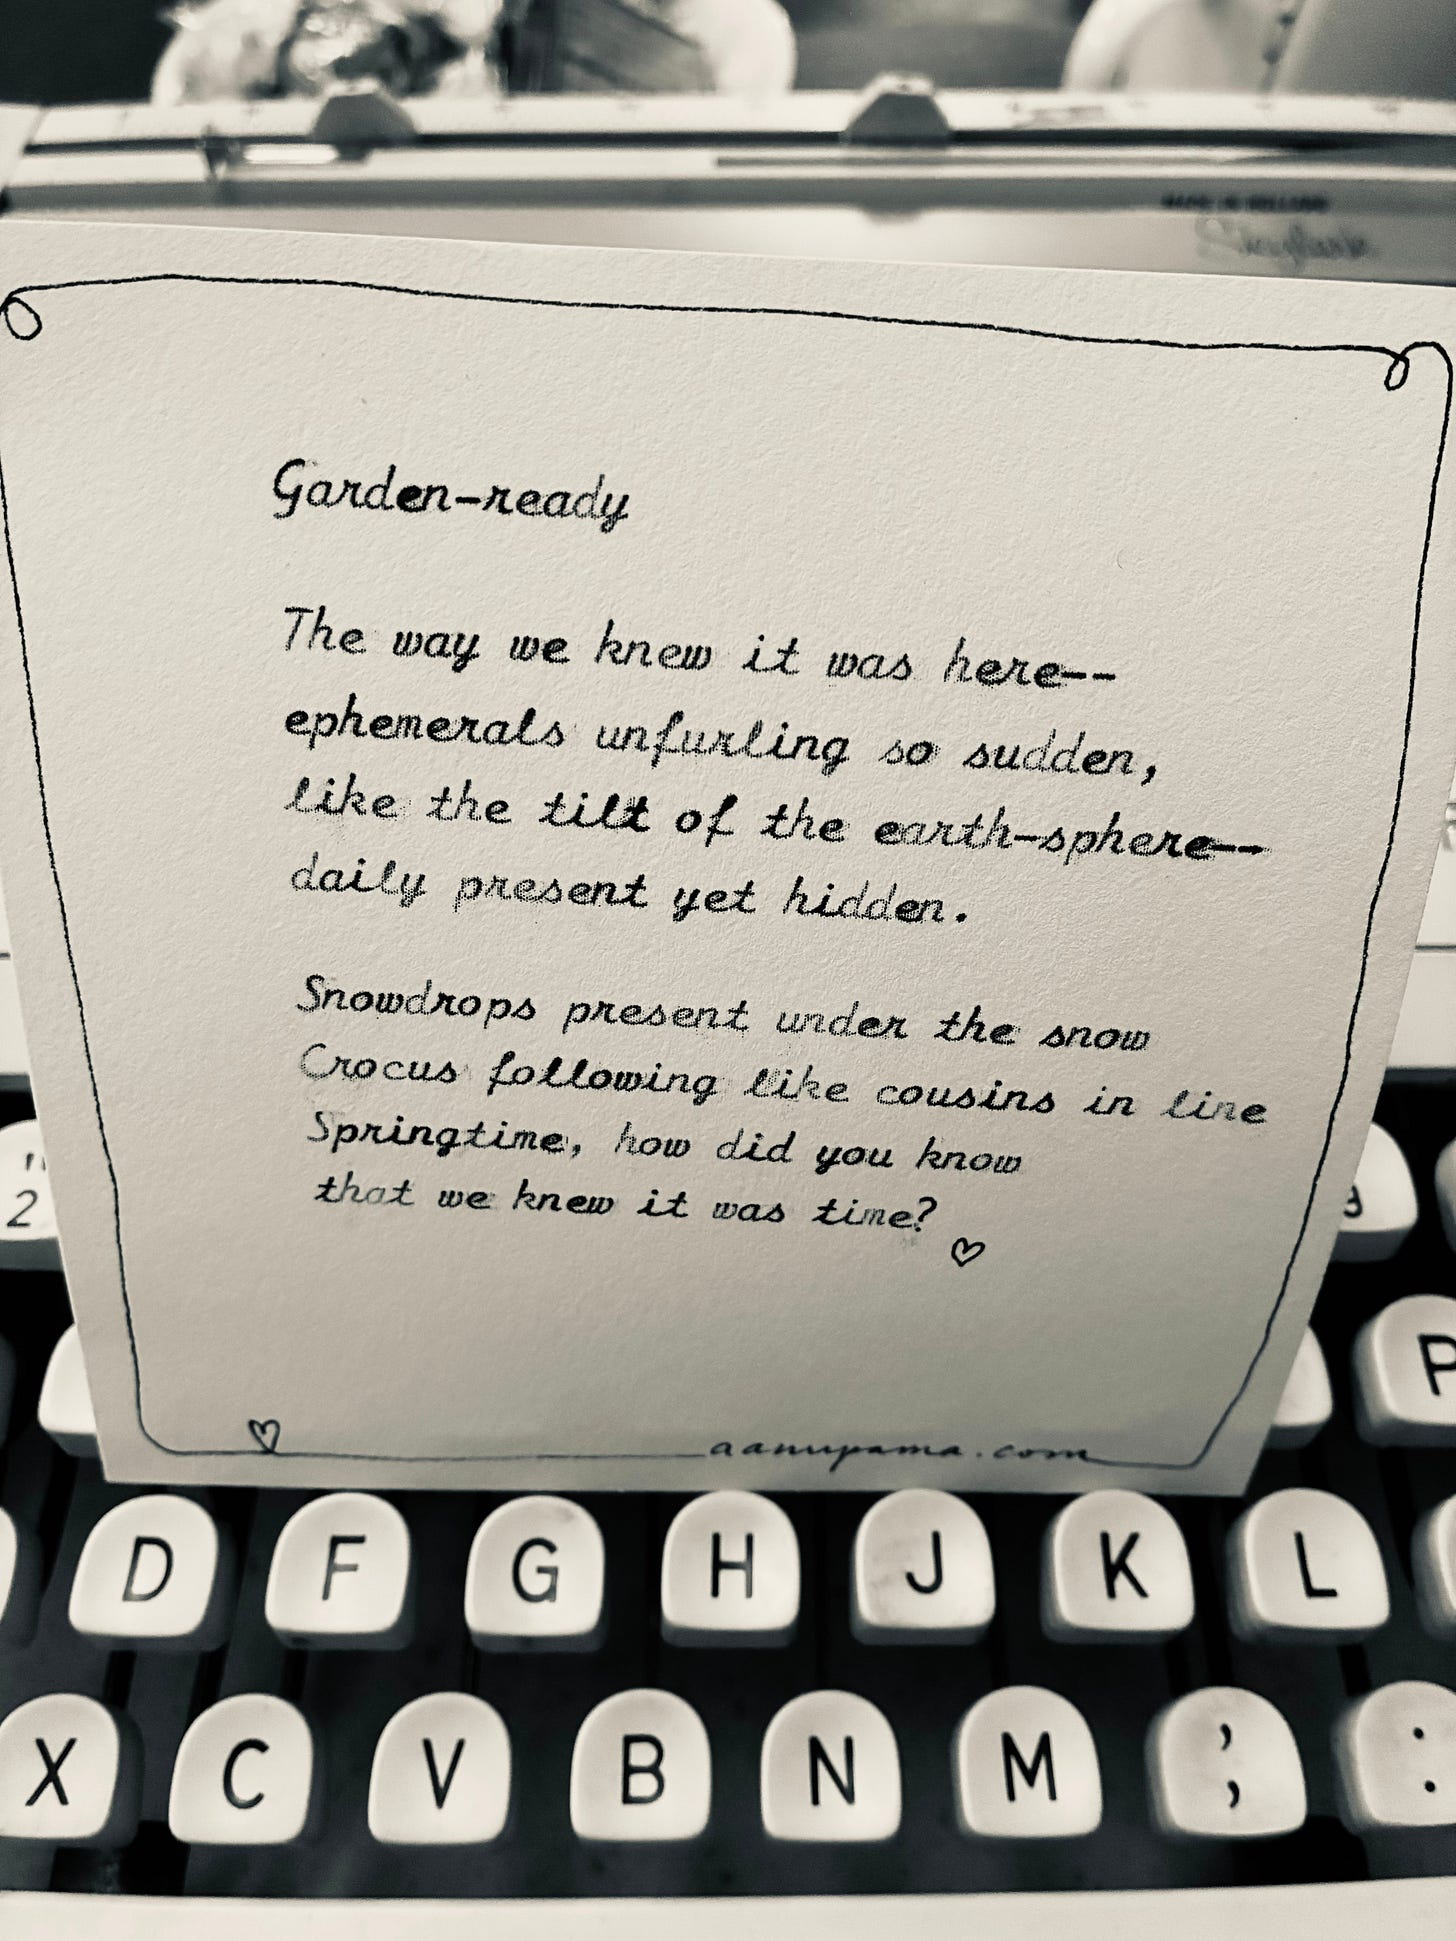 Garden-ready
The way we knew it was here--
ephemerals unfurling so sudden,
like the tilt of the earth-sphere--
daily present yet hidden.
Snowdrops present under the snow
Crocus following like cousins in line
Springtime, how did you know
that we knew it was time?
aanupama.com
" 2
P
D F G H J K L
X C V B N M , ; :